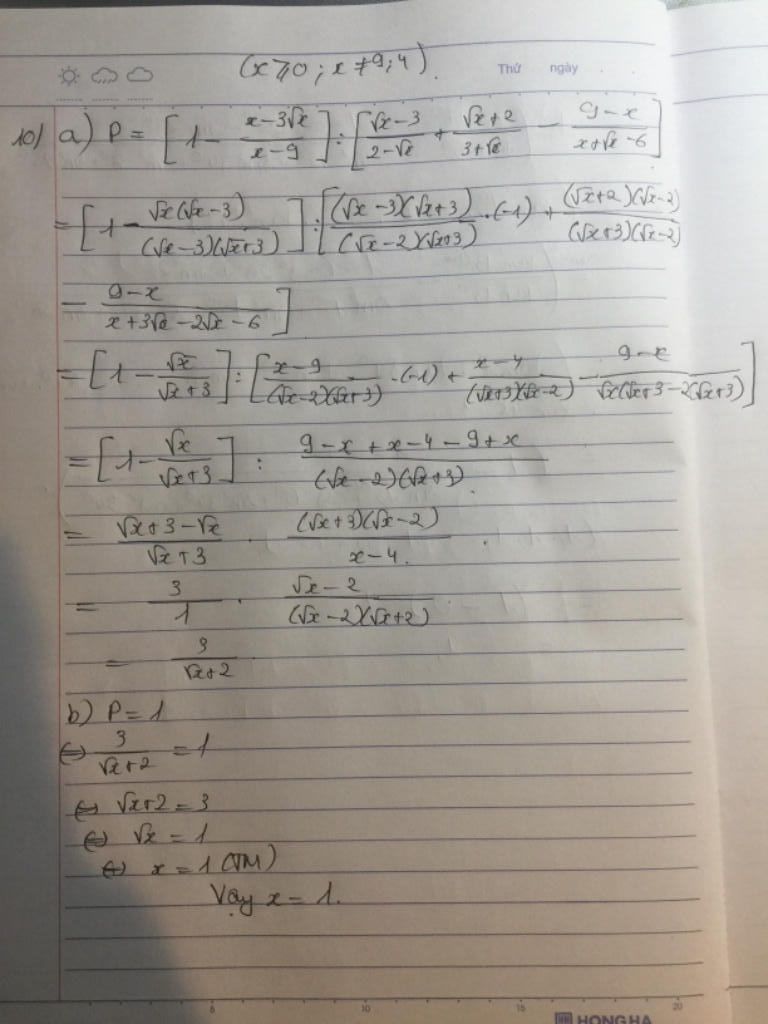 (x⩾0 ; x ≠ 9 ; 4).
Thứ ngày
10) a) P = [1 - (x-3√x)/(x-9)] : [(√x-3)/(2-√x) + (√x+2)/(3+√x) - (9-x)/(x+√x-6)]
= [1 - (√x(√x-3))/((√x-3)(√x+3))] : [((√x-3)(√x+3))/((√x-2)(√x+3)) .(-1) + ((√x+2)(√x-2))/((√x+3)(√x-2))
- (9-x)/(x+3√x-2√x-6)]
= [1 - √x/(√x+3)] : [(x-9)/((√x-2)(√x+3)) .(-1) + (x-4)/((√x+3)(√x-2)) - (9-x)/(√x(√x+3-2(√x+3))]
= [1 - √x/(√x+3)] : (9-x+x-4-9+x)/((√x-2)(√x+3))
= (√x+3-√x)/(√x+3) . ((√x+3)(√x-2))/(x-4) .
= 3/1 . (√x-2)/((√x-2)(√x+2))
= 3/(√x+2)
b) P = 1
⇔ 3/(√x+2) = 1
⇔ √x+2 = 3
⇔ √x = 1
⇔ x = 1 (TM)
Vậy x = 1.
5 10 15 20
HONG HA